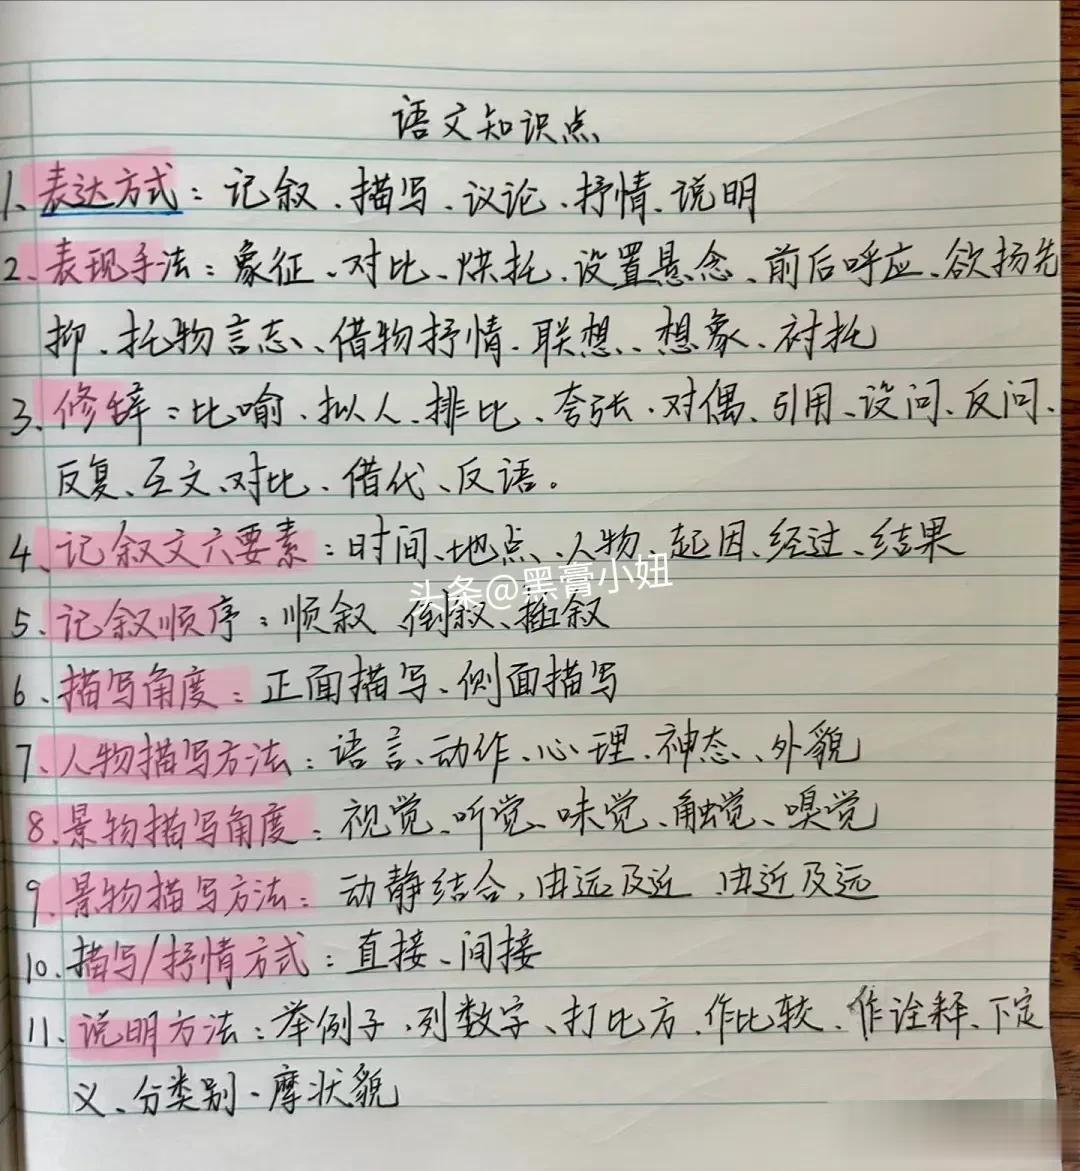 语文知识点
1、表达方式：记叙、描写、议论、抒情、说明
2、表现手法：象征、对比、烘托、设置悬念、前后呼应、欲扬先
抑、托物言志、借物抒情、联想、想象、衬托
3、修辞：比喻、拟人、排比、夸张、对偶、引用、设问、反问、
反复、互文、对比、借代、反语。
4、记叙文六要素：时间、地点、人物、起因、经过、结果
头条@黑膏小妞
5、记叙顺序：顺叙、倒叙、插叙
6、描写角度：正面描写、侧面描写
7、人物描写方法：语言、动作、心理、神态、外貌
8、景物描写角度：视觉、听觉、味觉、触觉、嗅觉
9、景物描写方法：动静结合，由远及近、由近及远
10、描写/抒情方式：直接、间接
11、说明方法：举例子、列数字、打比方、作比较、作诠释、下定
义、分类别、摩状貌